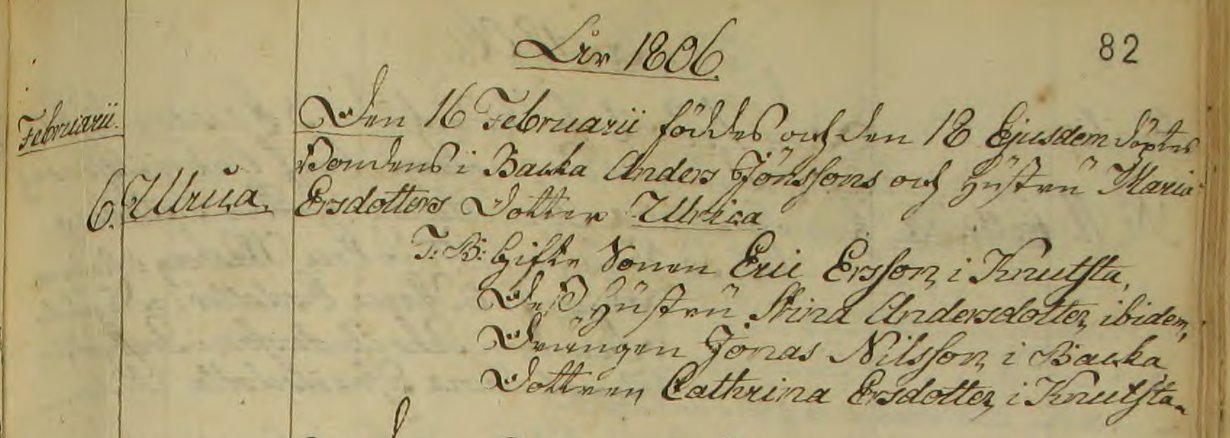 År 1806.
82
Februarii.
Den 16 Februarii föddes och den 18 Ejusdem döptes
Bondens i Backa Anders Jönssons och Hustru Maria
6. Ulrica.
Ersdotters Dotter Ulrica
T: B: Gifte Sonen Eric Ersson, i Knutsta,
Dess Hustru Stina Andersdotter, ibidem,
Drängen Jonas Nilsson, i Backa
Dottren, Cathrina Ersdotter, i Knutsta